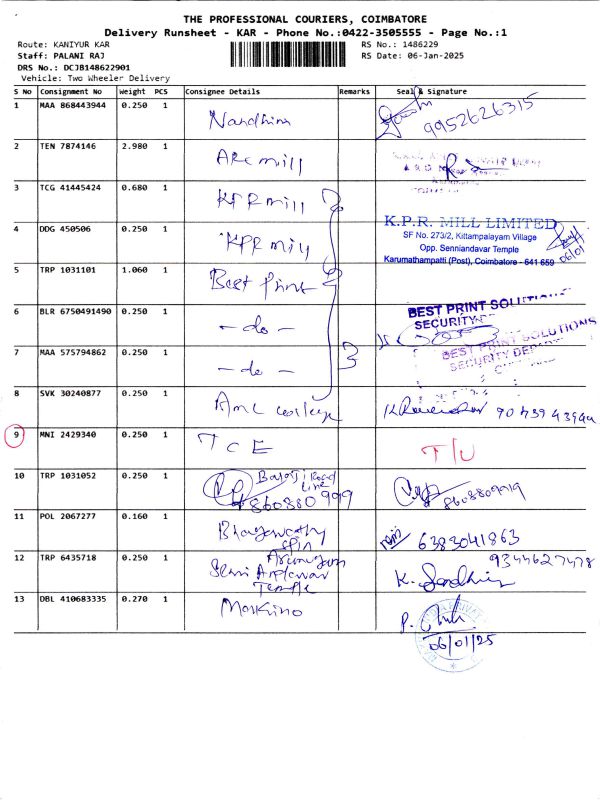 THE PROFESSIONAL COURIERS, COIMBATORE
Delivery Runsheet - KAR - Phone No.:0422-3505555 - Page No.:1
Route: KANIYUR KAR
RS No.: 1486229
Staff: PALANI RAJ
RS Date: 06-Jan-2025
DRS No.: DCJB148622901
Vehicle: Two Wheeler Delivery
S No Consignment No Weight PCS Consignee Details Remarks Seal & Signature
1 MAA 868443944 0.250 1 Nandhini 9952626315
2 TEN 7874146 2.980 1 ARC mill
3 TCG 41445424 0.680 1 KPR mill
4 DDG 450506 0.250 1 KPR mill
K.P.R. MILL LIMITED
SF No. 273/2, Kittampalayam Village
Opp. Senniandavar Temple
Karumathampatti (Post), Coimbatore - 641 659
06/01
5 TRP 1031101 1.060 1 Best Print
6 BLR 6750491490 0.250 1 - do -
BEST PRINT SOLUTIONS
SECURITY
7 MAA 575794862 0.250 1 - do - 3
BEST PRINT SOLUTIONS
SECURITY DEP
8 SVK 30240877 0.250 1
9 MNI 2429340 0.250 1 T C E T/U
10 TRP 1031052 0.250 1 Balaji Road Line
8608809919
11 POL 2067277 0.160 1 Bhagawathy Spin 6383041863
12 TRP 6435718 0.250 1 Temple 9344627478
13 DBL 410683335 0.270 1
06/01/25